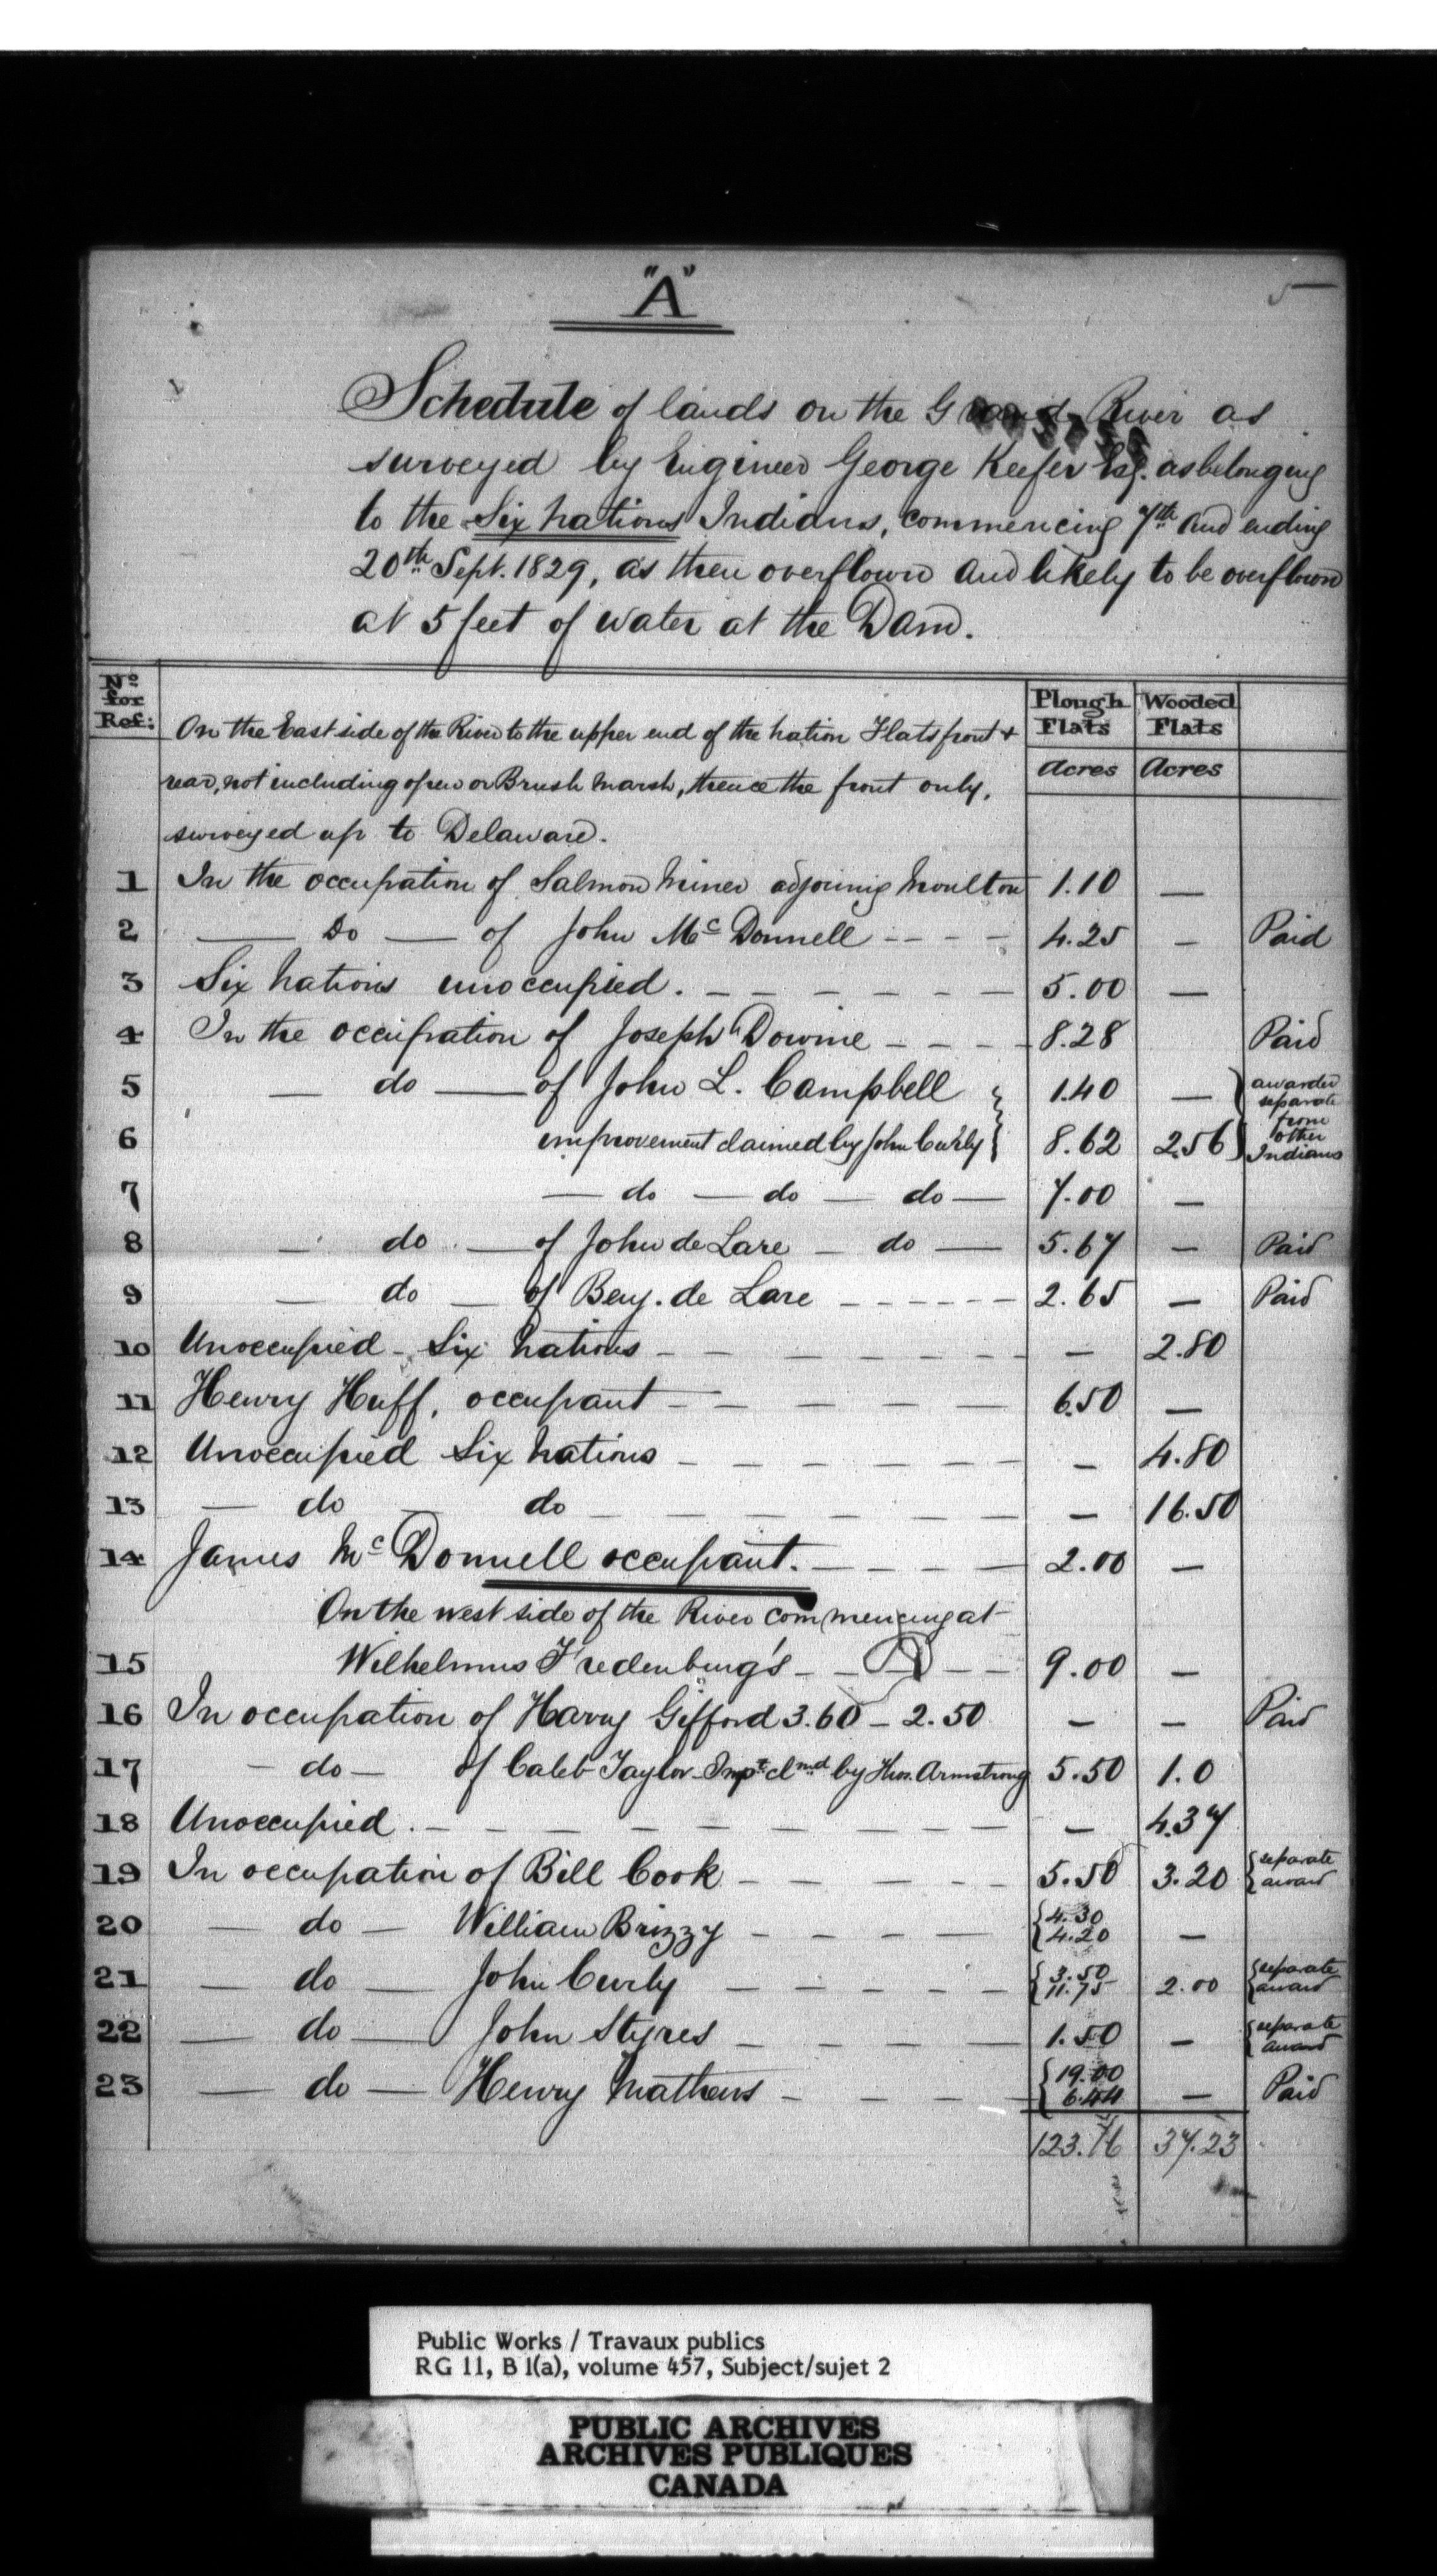 "A"
5
Schedule of lands on the Grand River as
surveyed by Engineer George Keefer Esq. as belonging
to the Six Nations Indians, commencing 7th and ending
20th Sept. 1829, as then overflown and likely to be overflown
at 5 feet of water at the Dam.
No for Ref: Plough Flats Wooded Flats
Acres Acres
On the East side of the River to the upper end of the Nation Flats front +
rear, not including open or Brush Marsh, thence the front only,
surveyed up to Delaware.
1 In the occupation of Salmon Miner adjoining Moulton 1.10 —
2 — Do — of John Mc Donnell - - - - 4.25 — Paid
3 Six Nations unoccupied. — — — — — — 5.00 —
4 In the occupation of Joseph Downie — — — — 8.28 Paid
5 — do — of John L. Campbell } 1.40 — } awarded separate
6 improvement claimed by John Curly } 8.62 2.56 } from other Indians
7 — do — do — do — 7.00 —
8 — do — of John de Lare — do — 5.67 — Paid
9 — do — of Benj. de Lare - - - - - - 2.65 — Paid
10 Unoccupied - Six Nations — — — — — — — — 2.80
11 Henry Huff, occupant — — — — — — 6.50 —
12 Unoccupied Six Nations — — — — — — — 4.80
13 — do — do — — — — — — — 16.50
14 James Mc Donnell occupant. — — — — 2.00 —
On the west side of the River commencing at
15 Wilhelmus Fredenburg's — — — — 9.00 —
16 In occupation of Harry Gifford 3.60 — 2.50 — — Paid
17 — do — of Caleb Taylor Impt clmd by Thos. Armstrong 5.50 1.0
18 Unoccupied. — — — — — — — — — — 4.37
19 In occupation of Bill Cook — — — — — 5.50 3.20 { separate award
20 — do — William Brizzy — — — — — { 4.30 4.20 —
21 — do — John Curly — — — — — { 3.50 11.75 2.00 { separate award
22 — do — John Styres — — — — 1.50 — { separate award
23 — do — Henry Mathews — — — — { 19.00 6.44 — Paid
123.76 37.23
Public Works / Travaux publics
RG 11, B 1(a), volume 457, Subject/sujet 2
PUBLIC ARCHIVES
ARCHIVES PUBLIQUES
CANADA